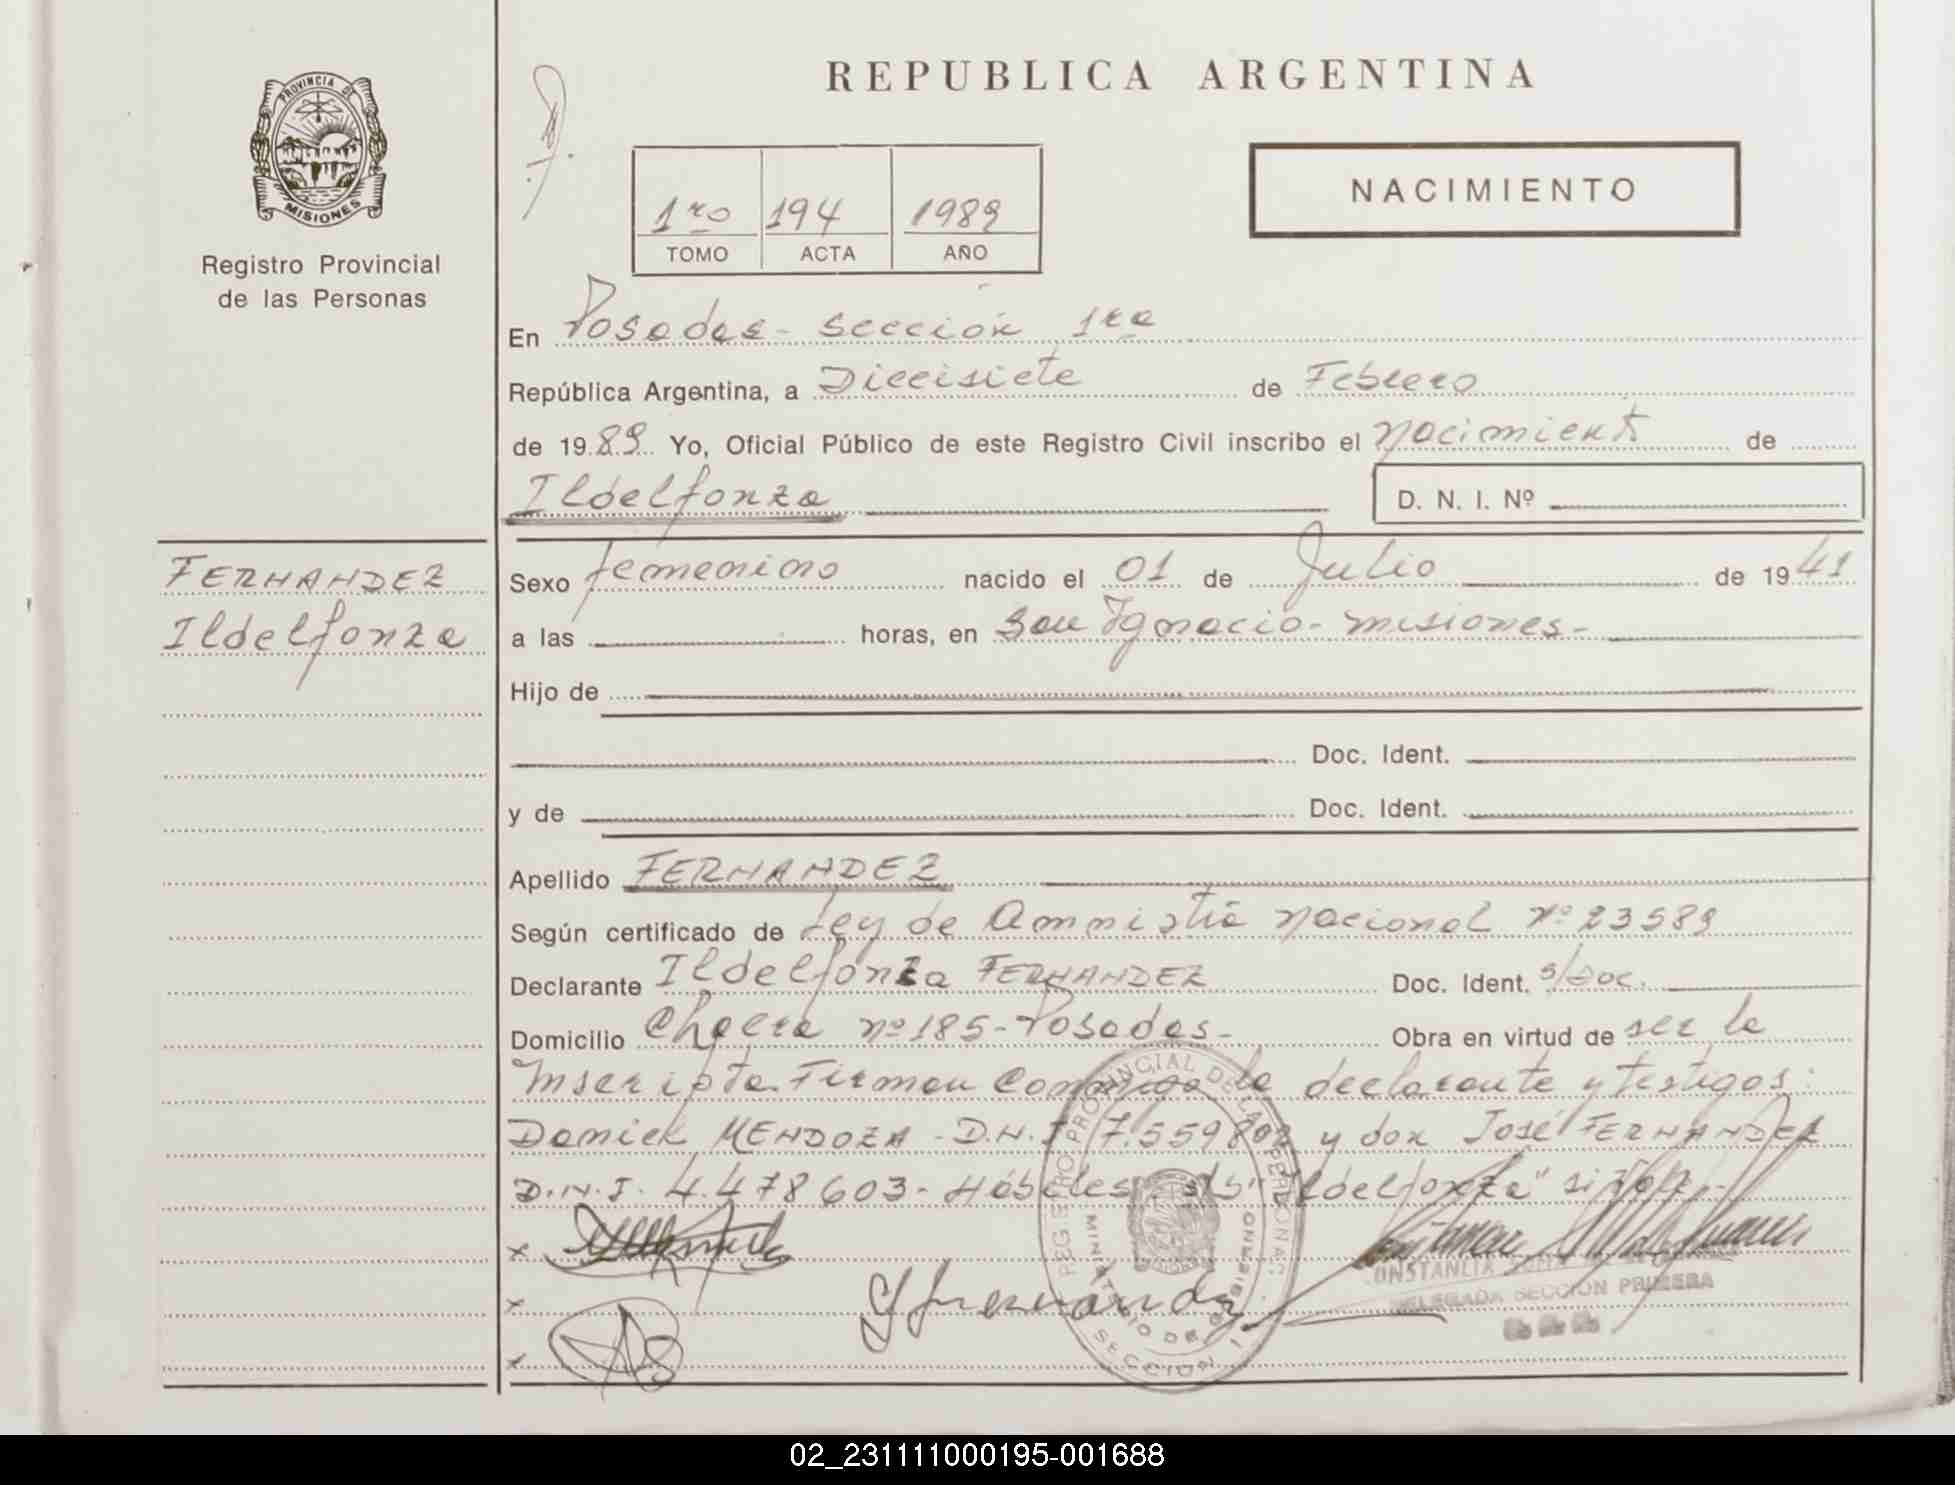 PROVINCIA DE
MISIONES
Registro Provincial
de las Personas
REPUBLICA ARGENTINA
NACIMIENTO
1ro 194 1989
TOMO ACTA AÑO
En Posadas - sección 1ra
República Argentina, a Diecisiete de Febrero
de 1989 Yo, Oficial Público de este Registro Civil inscribo el nacimiento de
Ildelfonza D. N. I. Nº
FERNANDEZ
Ildelfonza
Sexo femenino nacido el 01 de Julio de 1941
a las horas, en San Ignacio - misiones -
Hijo de
Doc. Ident.
y de Doc. Ident.
Apellido FERNANDEZ
Según certificado de Ley de Ammistia nacional nº 23589
Declarante Ildelfonza FERNANDEZ Doc. Ident. s/Doc.
Domicilio Chacra nº 185 - Posadas - Obra en virtud de ser la
Inscripta. Firman conmigo la declarante y testigos:
Daniel MENDOZA - D.N.I 7.559802 y don José FERNANDEZ
D.N.I. 4.478603 - Hábiles - s/b "Ildelfonza"
REGISTRO PROVINCIAL DE LAS PERSONAS
MINISTERIO DE GOBIERNO
SECCION 1
CONSTANCIA
DELEGADA SECCION PRIMERA
02_231111000195-001688